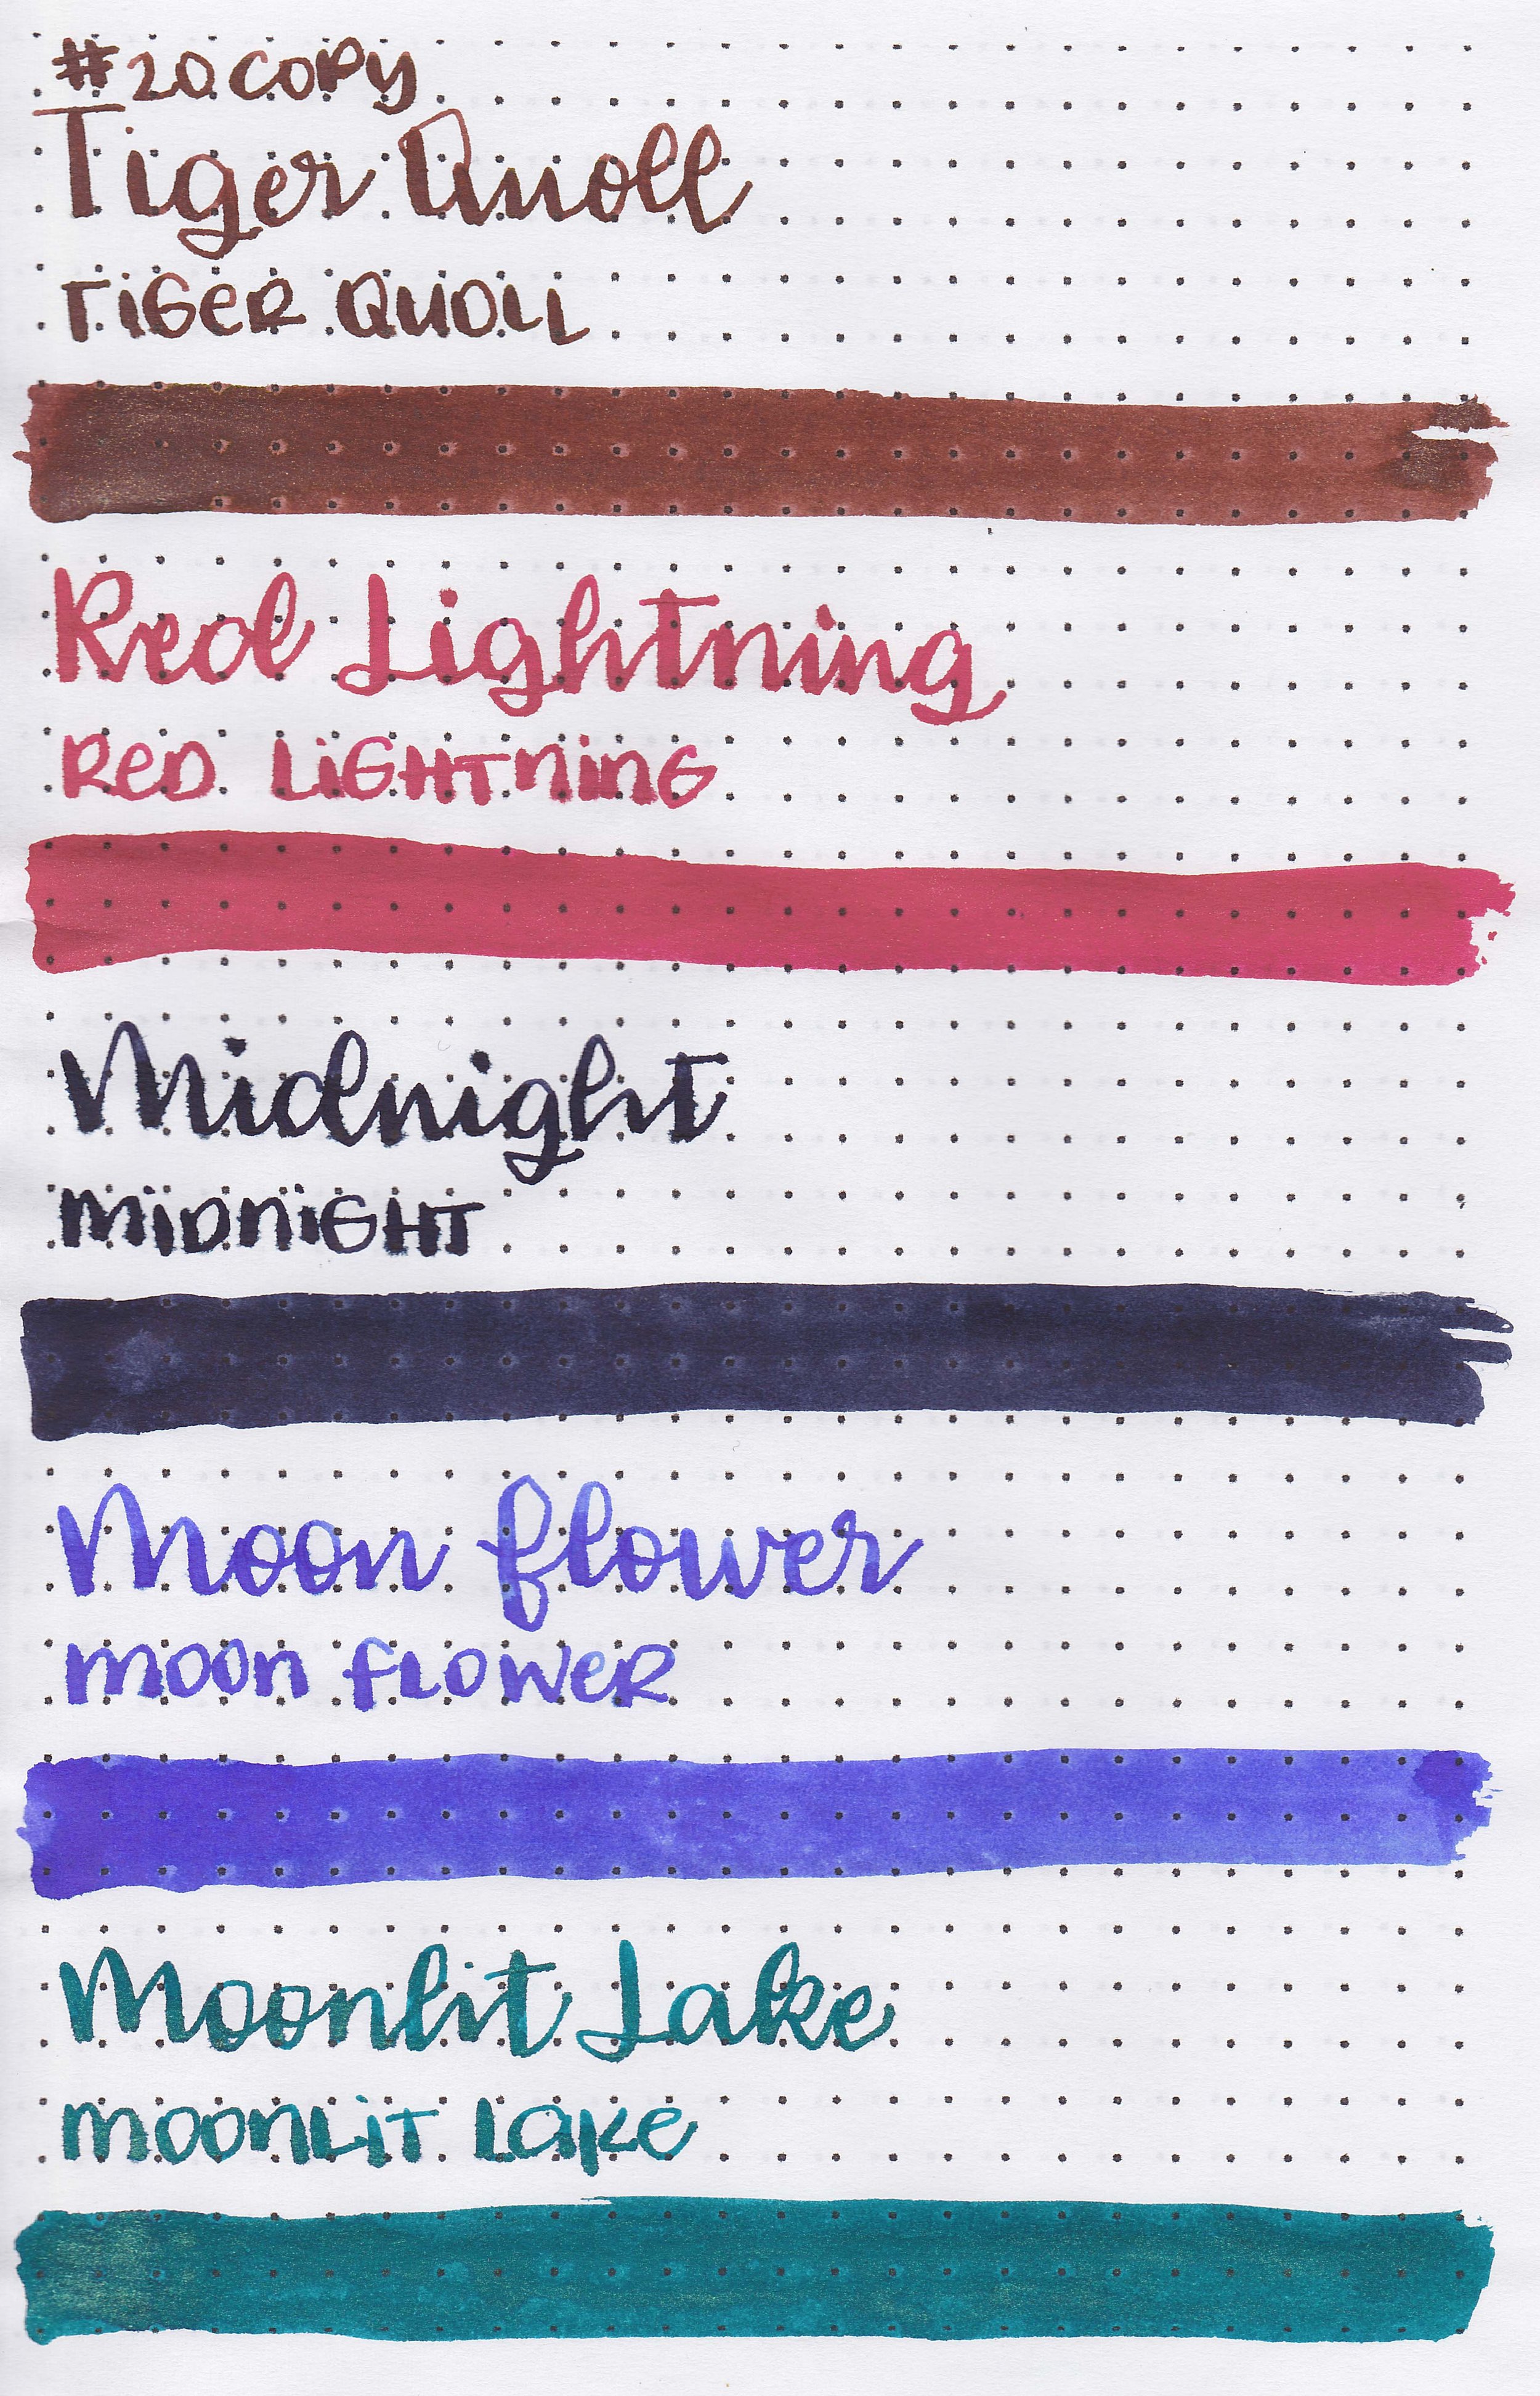 #20 COPY
Tiger Quoll
TIGER QUOLL
Red Lightning
RED LIGHTNING
Midnight
MIDNIGHT
Moon flower
MOON FLOWER
Moonlit Lake
MOONLIT LAKE